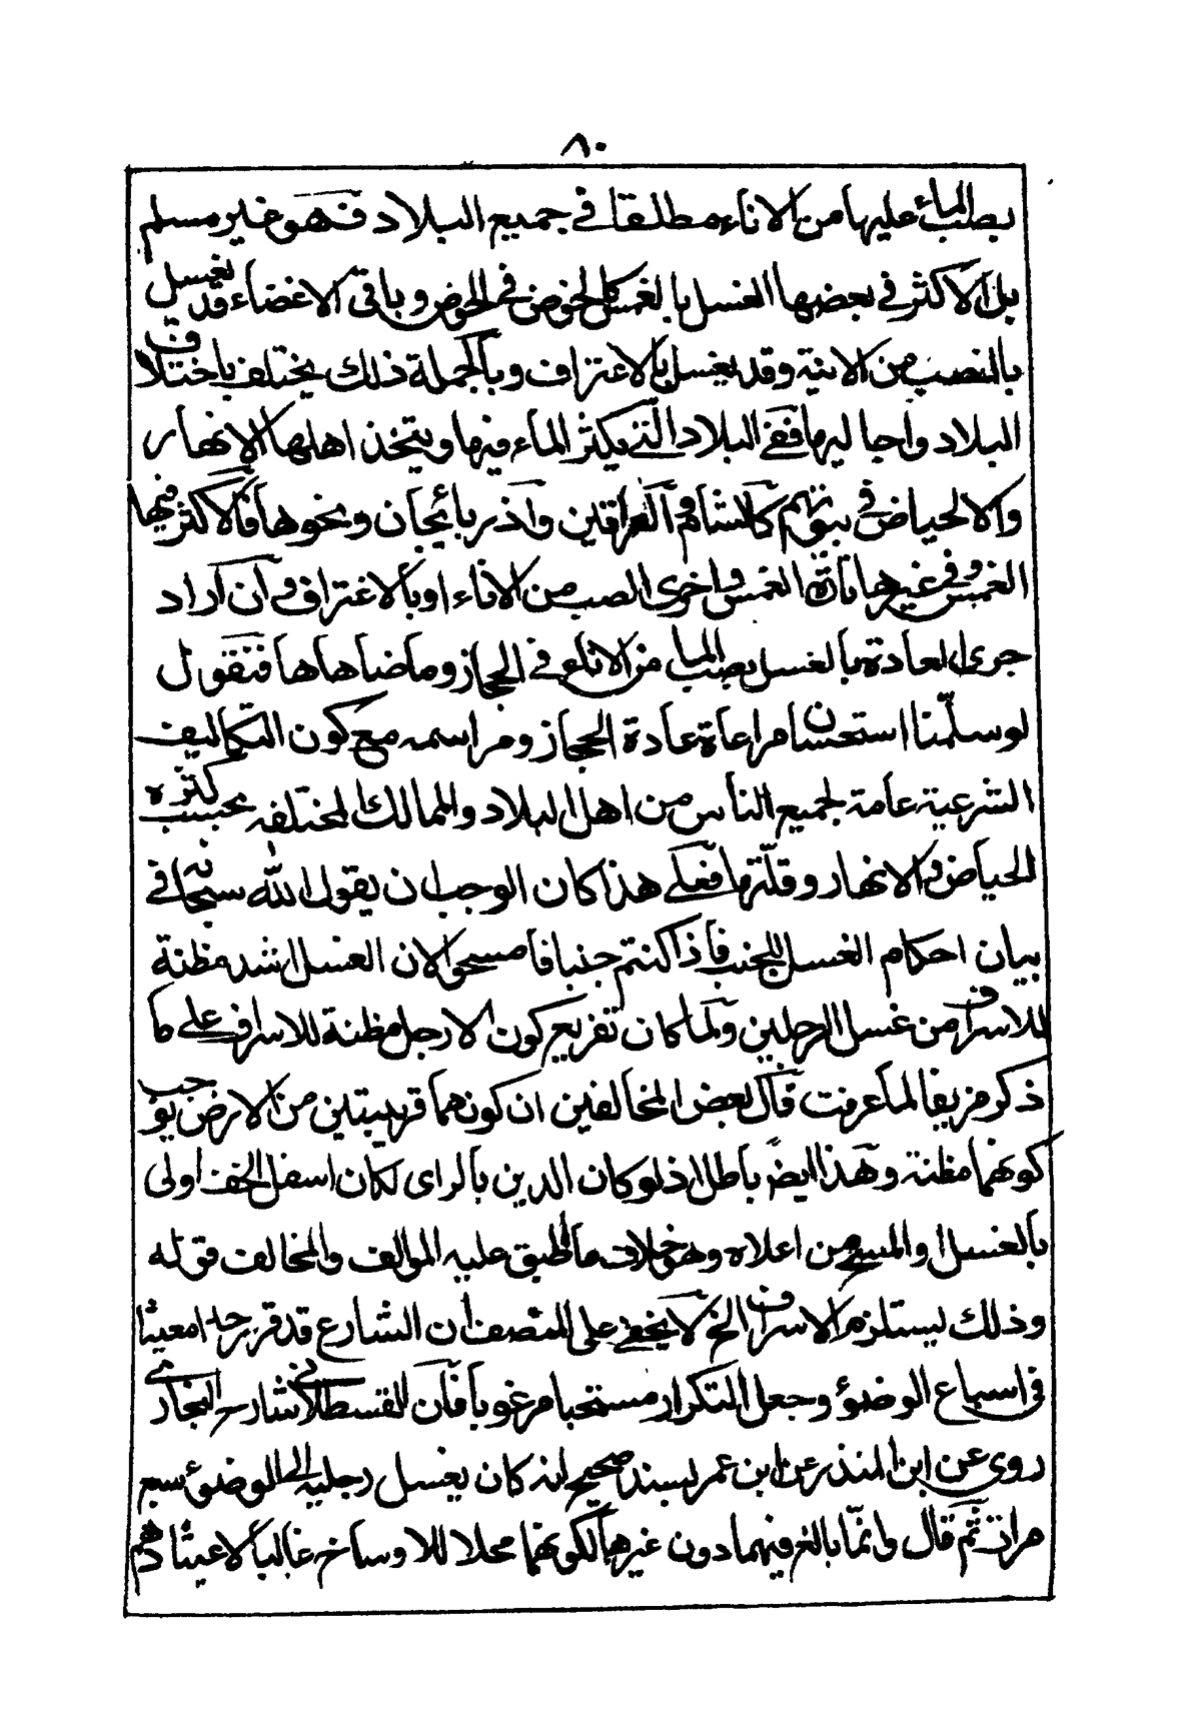 ٨٠
بصب الماء عليها من الاناء مطلقا في جميع البلاد فهو غير مسلم
بل الاكثر في بعضها الغسل بالغمس كالخوض في الحوض وباقي الاعضاء قد تغسل
بالصب من الانية وقد يغسل بالاغتراف وبالجملة ذلك يختلف باختلاف
البلاد واجا ليها ففي البلاد التي يكثر الماء فيها ويتخذ اهلها الانهار
والحياض في بيوتهم كالشام والعراقين واذربائجان ونحوها فالاكثر فيها
الغمس وفي غيرها تارة الغمس واخرى الصب من الاناء او بالاغتراف وان اراد
جرى العادة بالغسل بصب الماء من الاناء في الحجاز وما ضاهاها فنقول
لو سلمنا استحسان مراعاة عادة الحجاز ومراسمه مع كون التكاليف
الشرعية عامة لجميع الناس من اهل البلاد والممالك المختلفه بحسب كثرة
الحياض والانهار وقلتها فعلى هذا كان الوجب ان يقول الله سبحانه في
بيان احكام الغسل للجنب فاذا كنتم جنبا فامسحوا لان الغسل اشد مظنة
للاسراف من غسل الرجلين ولما كان تفريع كون الارجل مظنة للاسراف على ما
ذكر مزيفا لما عرفت قال بعض المخالفين ان كونهما قريبتين من الارض يوجب
كونهما مظنة وهذا ايضا باطل اذ لو كان الدين بالراى لكان اسفل الخف اولى
بالغسل او المسح من اعلاه وهو خلاف ما اطبق عليه المؤالف والمخالف قوله
وذلك يستلزم الاسراف الخ لا يخفى على المنصف ان الشارع قد قرر حدا معينا
في اسباغ الوضوء وجعل التكرار مستحبا مرغوبا فان القسطلاني شارح البخارى
روى عن ابن المنذر عن ابن عمر بسند صحيح انه كان يغسل رجليه الى الوضوء سبع
مرات ثم قال وانما بالغ فيهما دون غيرهما لكونهما محلا للاوساخ غالبا لاعتيادهم